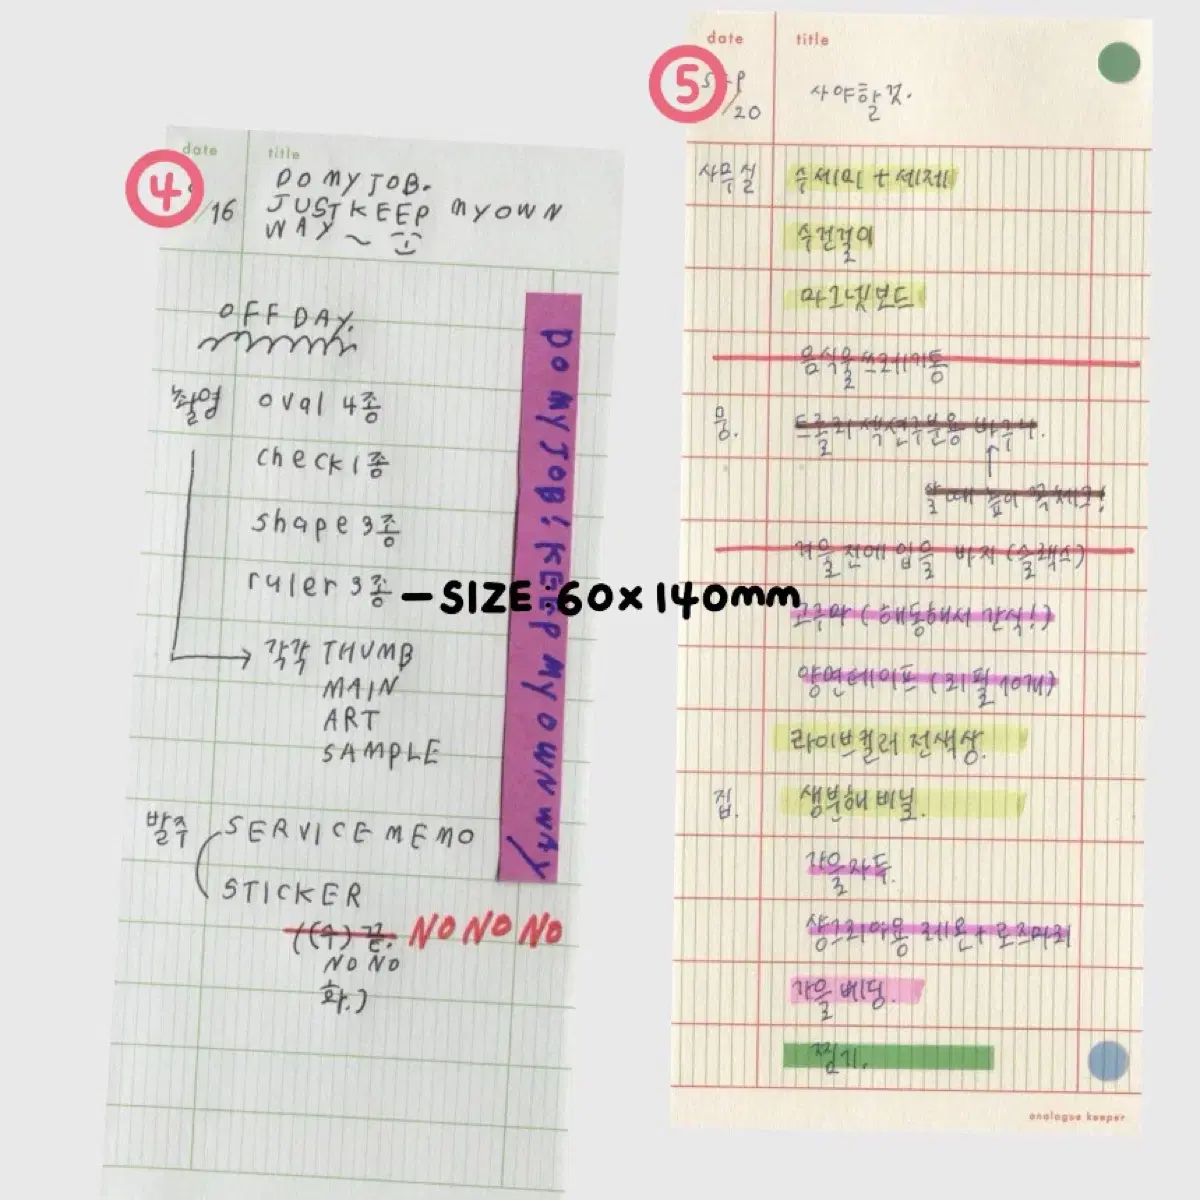 ④
date
title
/16
DO MY JOB.
JUST KEEP MY OWN
WAY ~
OFF DAY.
촬영 oval 4종
check 1종
shape 3종
ruler 3종
각각 THUMB
MAIN
ART
SAMPLE
발주 SERVICE MEMO
STICKER
((수) 끝. NO NO NO
NO NO
화.)
DO MY JOB! KEEP MY OWN WAY
-SIZE:60×140mm
⑤
date
title
/20
사야할 것.
사무실 수세미 + 세제
수건걸이
마그넷보드
음식물쓰레기통
뭉. 트롤리 섹션구분용 바구니.
살 때 높이 꼭 체크!
겨울 전에 입을 바지 (슬랙스)
고구마 (해동해서 간식!)
양면테이프 (리필 10개)
라이브컬러 전색상.
집. 생분해 비닐.
가을자두.
샹그리아용 레몬+로즈마리
가을 베딩.
찜기.
analogue keeper